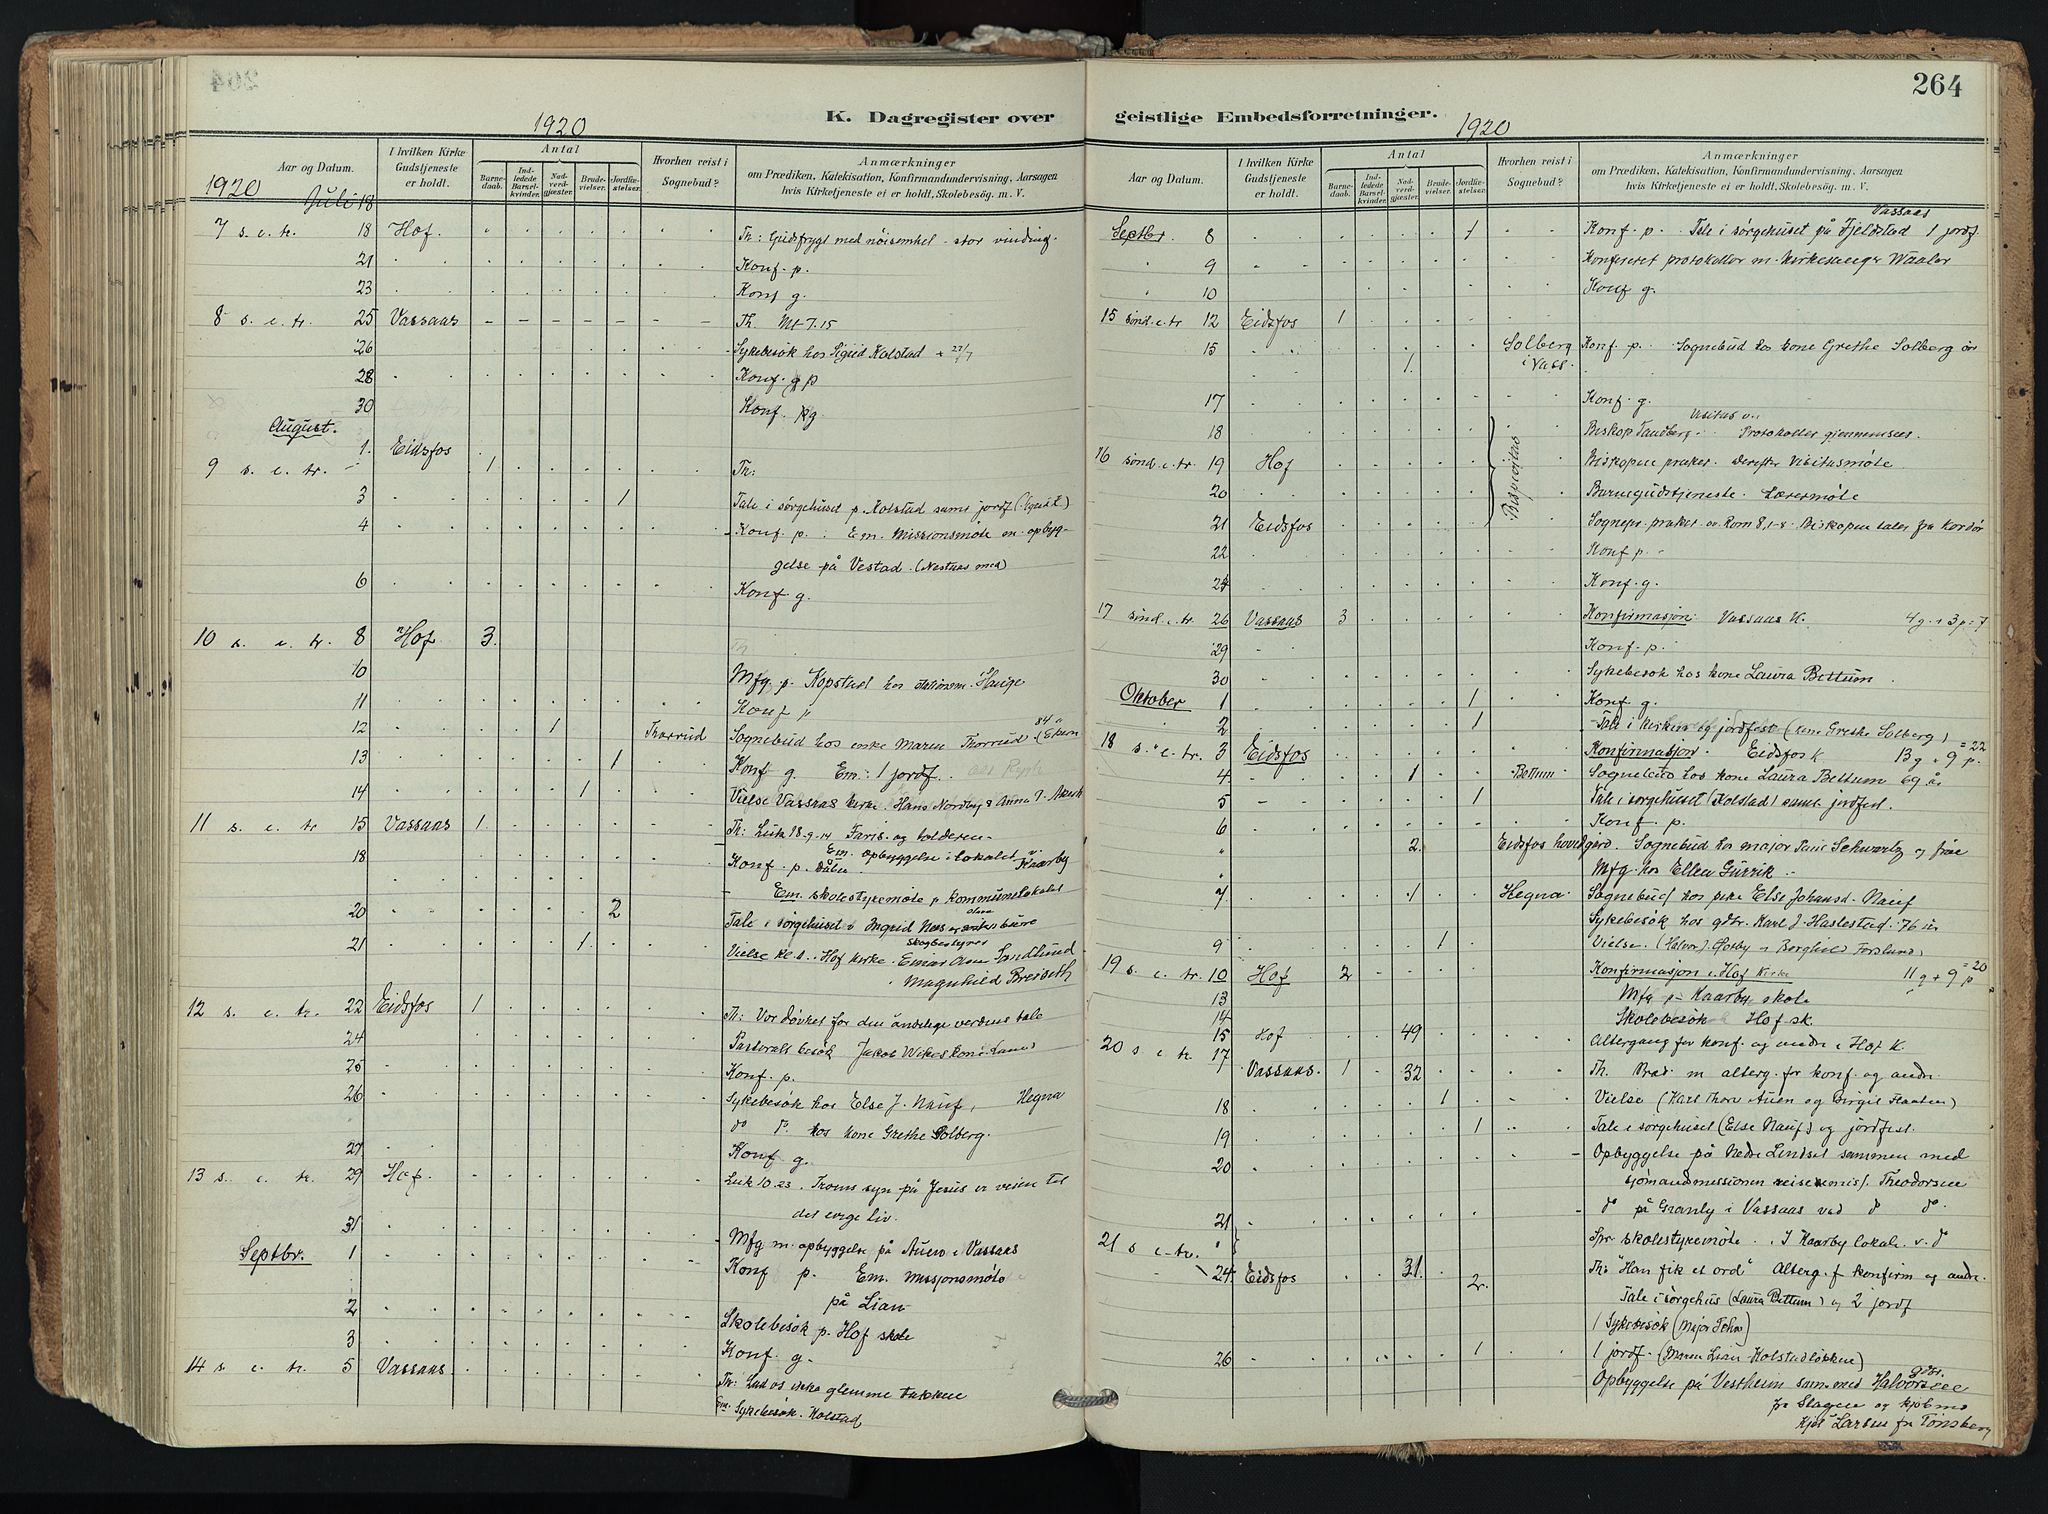 264
K. Dagregister over geistlige Embedsforretninger.
1920
1920
Aar og Datum.
I hvilken Kirke Gudstjeneste er holdt.
Antal
Barnedaab.
Indledede Barselkvinder.
Nadverdgjæster.
Brudevielser.
Jordfæstelser.
Hvorhen reist i Sognebud?
Anmærkninger
om Prædiken, Katekisation, Konfirmandundervisning, Aarsagen
hvis Kirketjeneste ei er holdt, Skolebesøg. m. V.
1920 Juli 18
7 s. e. tr. 18 Hof. Th: Gudsfrygt med nøisomhet - stor vinding.
21 Konf. p.
23 Konf g.
8 s. e. tr. 25 Vassaas Th. Mt 7.15
26 Sykebesøk hos Sigrid Kolstad + 27/7
28 Konf. p
30 Konf. g
August.
9 s. e. tr. 1. Eidsfos 1 Th:
3 1 Tale i sørgehuset p. Kolstad samt jordf
4 Konf. p. Em. Missionsmøte m. opbyg-
gelse på Vestad.
6 Konf g.
10 s. e. tr. 8 Hof. 3.
10 Mfg. p. Kopstad hos stationsm. Hauge
11 Konf p
12 1 Thorrud Sognebud hos enke Maren Thorrud 84
13 1 Konf g. Em: 1 jordf.
14 1 Vielse Vassaas kirke. Hans Nordby & Anna
11 s. e. tr 15 Vassaas 1. Th: Luk 18.9-14 Faris. og tolderen
18 Konf. p. Em. opbyggelse i Lokalet v. Kaarby
Em. skolestyremøte p kommunelokalet
20 2 Tale i sørgehuset
21 1. Vielse Hof kirke. Einar Sandlund
Magnhild
12 s. e. tr. 22 Eidsfos 1 Th: Vor døvhet for den åndelige verdens tale
24 besøk Jakob
25 Konf. p.
26 Sykebesøk hos Else J. Nauf, Hegna
do do hos kone Grethe Solberg.
27 Konf g.
13 s. e. tr. 29 Hof. Luk 10.23. Troens syn på Jesus er veien til
det evige liv.
31 Mfg m. opbyggelse på Auen i Vassaas
Septbr. 1 Konf p. Em. missjonsmøte
på Lian
2 Skolebesøk p. Hof skole
3 Konf. g.
14 s. e. tr. 5 Vassaas. Th: Lad os ikke glemme takken
Em. Sykebesøk. Kolstad
Aar og Datum.
I hvilken Kirke Gudstjeneste er holdt.
Antal
Barnedaab.
Indledede Barselkvinder.
Nadverdgjæster.
Brudevielser.
Jordfæstelser.
Hvorhen reist i Sognebud?
Anmærkninger
om Prædiken, Katekisation, Konfirmandundervisning, Aarsagen
hvis Kirketjeneste ei er holdt, Skolebesøg. m. V.
Vassaas
Septbr. 8 1 Konf. p. Tale i sørgehuset på Fjeldstad 1 jordf.
9 Konfereret protokoller m. kirkesanger Waaler
10 Konf g.
15 sønd. e. tr 12 Eidsfos 1
15 1. Solberg i Vass. Konf p. Sognebud hos kone Grethe Solberg
17 Konf. g.
18 Bispevisitas Biskop Tandberg. Protokoller gjennemsees.
16 sønd. e. tr. 19 Hof Biskopen præker. Derefter Visitasmøte
20 Barnegudstjeneste. Lærermøte
21 Eidsfos Sognepr. præker ov. Rom 8, 1-8. Biskopen taler fra kordør
22 Konf p.
24 Konf. g.
17 sønd. e. tr. 26 Vassaas 3 Konfirmasjon Vassaas K. 4 g. + 3 p = 7
29 Konf. p.
30 Sykebesøk hos kone Laura Bettum.
Oktober 1 1 Konf. g.
2 1 Tale i kirken og jordfest (kone Grethe Solberg)
18 s. e. tr. 3 Eidsfos Konfirmasjon. Eidsfos k 13 g + 9 p. = 22
4 1 Bettum Sognebud hos kone Laura Bettum 69 år
5 1 Tale i sørgehuset (Kolstad) samt jordfest.
6 Konf p.
2. Eidsfos hovedgård. Sognebud hos major Schwartz og frue
Mfg. hos Ellen
7 1 Hegna Sognebud hos pike Else Johansd. Nauf
Sykebesøk hos gdbr. Karl J. Haslestad. 76 år
9 1 Vielse. (Halvor J. & Borghild Forslund)
19 s. e. tr. 10 Hof 2 Konfirmasjon i Hof Kirke 11 g + 9 p = 20
13 Mfg p. Kaarby skole
14 Skolebesøk Hof sk.
15 Hof 49 Altergang for konf. og andre i Hof K.
20 s e tr 17 Vassaas. 1 32 Th. m alterg. for konf. og andr.
18 1 Vielse (Karl Thorv Auen og Birgit Flaaten)
19 1 Tale i sørgehuset (Else Nauf) og jordfest.
20 Opbyggelse på Nedre Lindset sammen med
sjømandmissionen reisemis). Theodorsen
21 do på Granly i Vassaas ved do do.
skolestyremøte. I Kaarby lokale v. do
21 s e tr. 24 Eidsfos 31. 2. Th: "Han fik et ord" Alterg. f konfirm og andre.
Tale i sørgehus (Laura Bettum) og 2 jordf
1 Sykebesøk
26 1 1 jordf. (Maren Lian Kolstadløkken)
Opbyggelse på Vestheim sam. med gdbr. Halvorsen
fra Slagen og kjøbm
Larsen fr Tønsberg